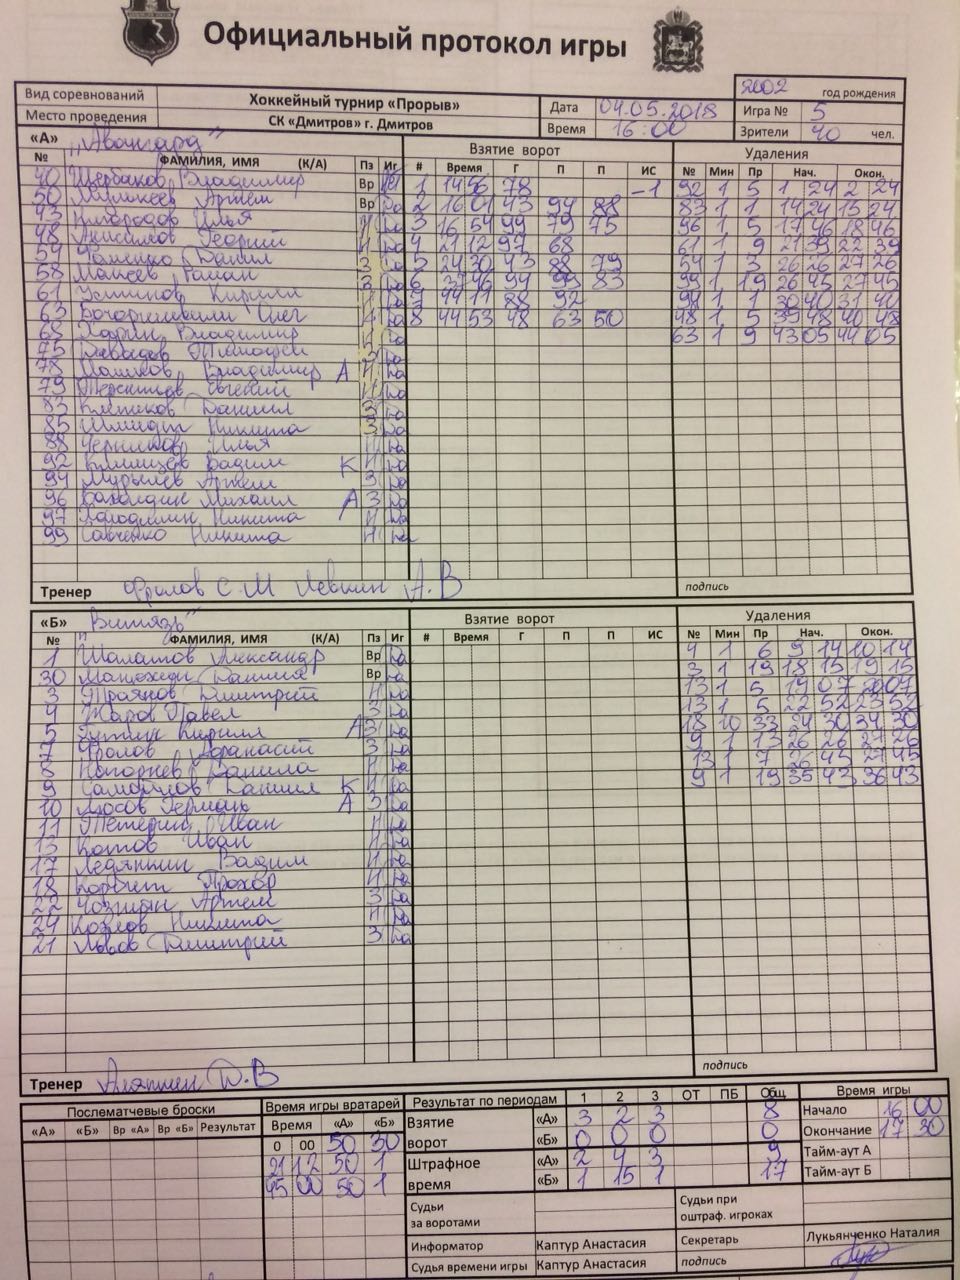 Официальный протокол игры
2002 год рождения
Вид соревнований Хоккейный турнир «Прорыв» Дата 04.05.2018 Игра № 5
Место проведения СК «Дмитров» г. Дмитров Время 16:00 Зрители 40 чел.
«А» "Авангард" Взятие ворот Удаления
№ ФАМИЛИЯ, ИМЯ (К/А) Пз Иг # Время Г П П ИС № Мин Пр Нач. Окон.
40 Щербаков Владимир Вр 1 14 56 78 -1 92 1 5 1 24 2 24
50 Артём Вр 2 16 01 43 94 88 83 1 1 14 24 15 24
43 Илья 3 16 54 99 79 75 96 1 5 17 46 18 46
48 Анисимов Георгий 4 21 12 97 68 61 1 9 21 39 22 39
54 Данил 5 24 30 43 88 79 54 1 3 26 26 27 26
58 Макеев Роман 6 94 99 83 99 1 19 26 45 27 45
61 Устинов Кирилл 7 44 11 88 92 94 1 1 30 40 31 40
63 Олег 8 44 53 48 63 50 48 1 5 39 48 40 48
68 Владимир 63 1 9 43 05 44 05
75 Тимофей
78 Владимир А
79 Терентьев Евгений
83 Клепиков Даниил
85 Шмидт Никита
88 Черников Илья
92 Вадим К
94 Мурылев Артем
96 Михаил А
97 Холодилин Никита
99 Савченко Никита
Тренер Фролов С.М Левшин А.В подпись
«Б» "Витязь" Взятие ворот Удаления
№ ФАМИЛИЯ, ИМЯ (К/А) Пз Иг # Время Г П П ИС № Мин Пр Нач. Окон.
1 Шалатов Александр Вр Да 4 1 6 9 14 10 14
30 Даниил Вр Да 3 1 19 18 15 19 15
3 Троянов Дмитрий 13 1 5 19 07 20 07
4 Жаров Павел 13 1 5 22 52 23 52
5 Кирилл А 18 10 33 24 30 34 30
7 Фролов Афанасий 9 1 13 26 26 27 26
8 Данила 13 1 7 26 45 27 45
9 Самойлов Даниил К 9 1 19 35 43 36 43
10 Лосов Герман А
11 Тетерин Иван
13 Котов Иван
17 Ледянкин Вадим
18 Корбут Прохор
22 Артем
24 Козлов Никита
21 Львов Дмитрий
Тренер Аляпкин Д.В подпись
Послематчевые броски Время игры вратарей Результат по периодам 1 2 3 ОТ ПБ Общ Время игры
«А» «Б» Вр «А» Вр «Б» Результат Время «А» «Б» Взятие ворот «А» 3 2 3 8 Начало 16 00
0 00 50 30 «Б» 0 0 0 0 Окончание 17 30
21 12 50 1 Штрафное время «А» 2 4 3 9 Тайм-аут А
45 00 50 1 «Б» 1 15 1 17 Тайм-аут Б
Судьи за воротами Судьи при оштраф. игроках
Информатор Каптур Анастасия Секретарь Лукьянченко Наталия
Судья времени игры Каптур Анастасия подпись